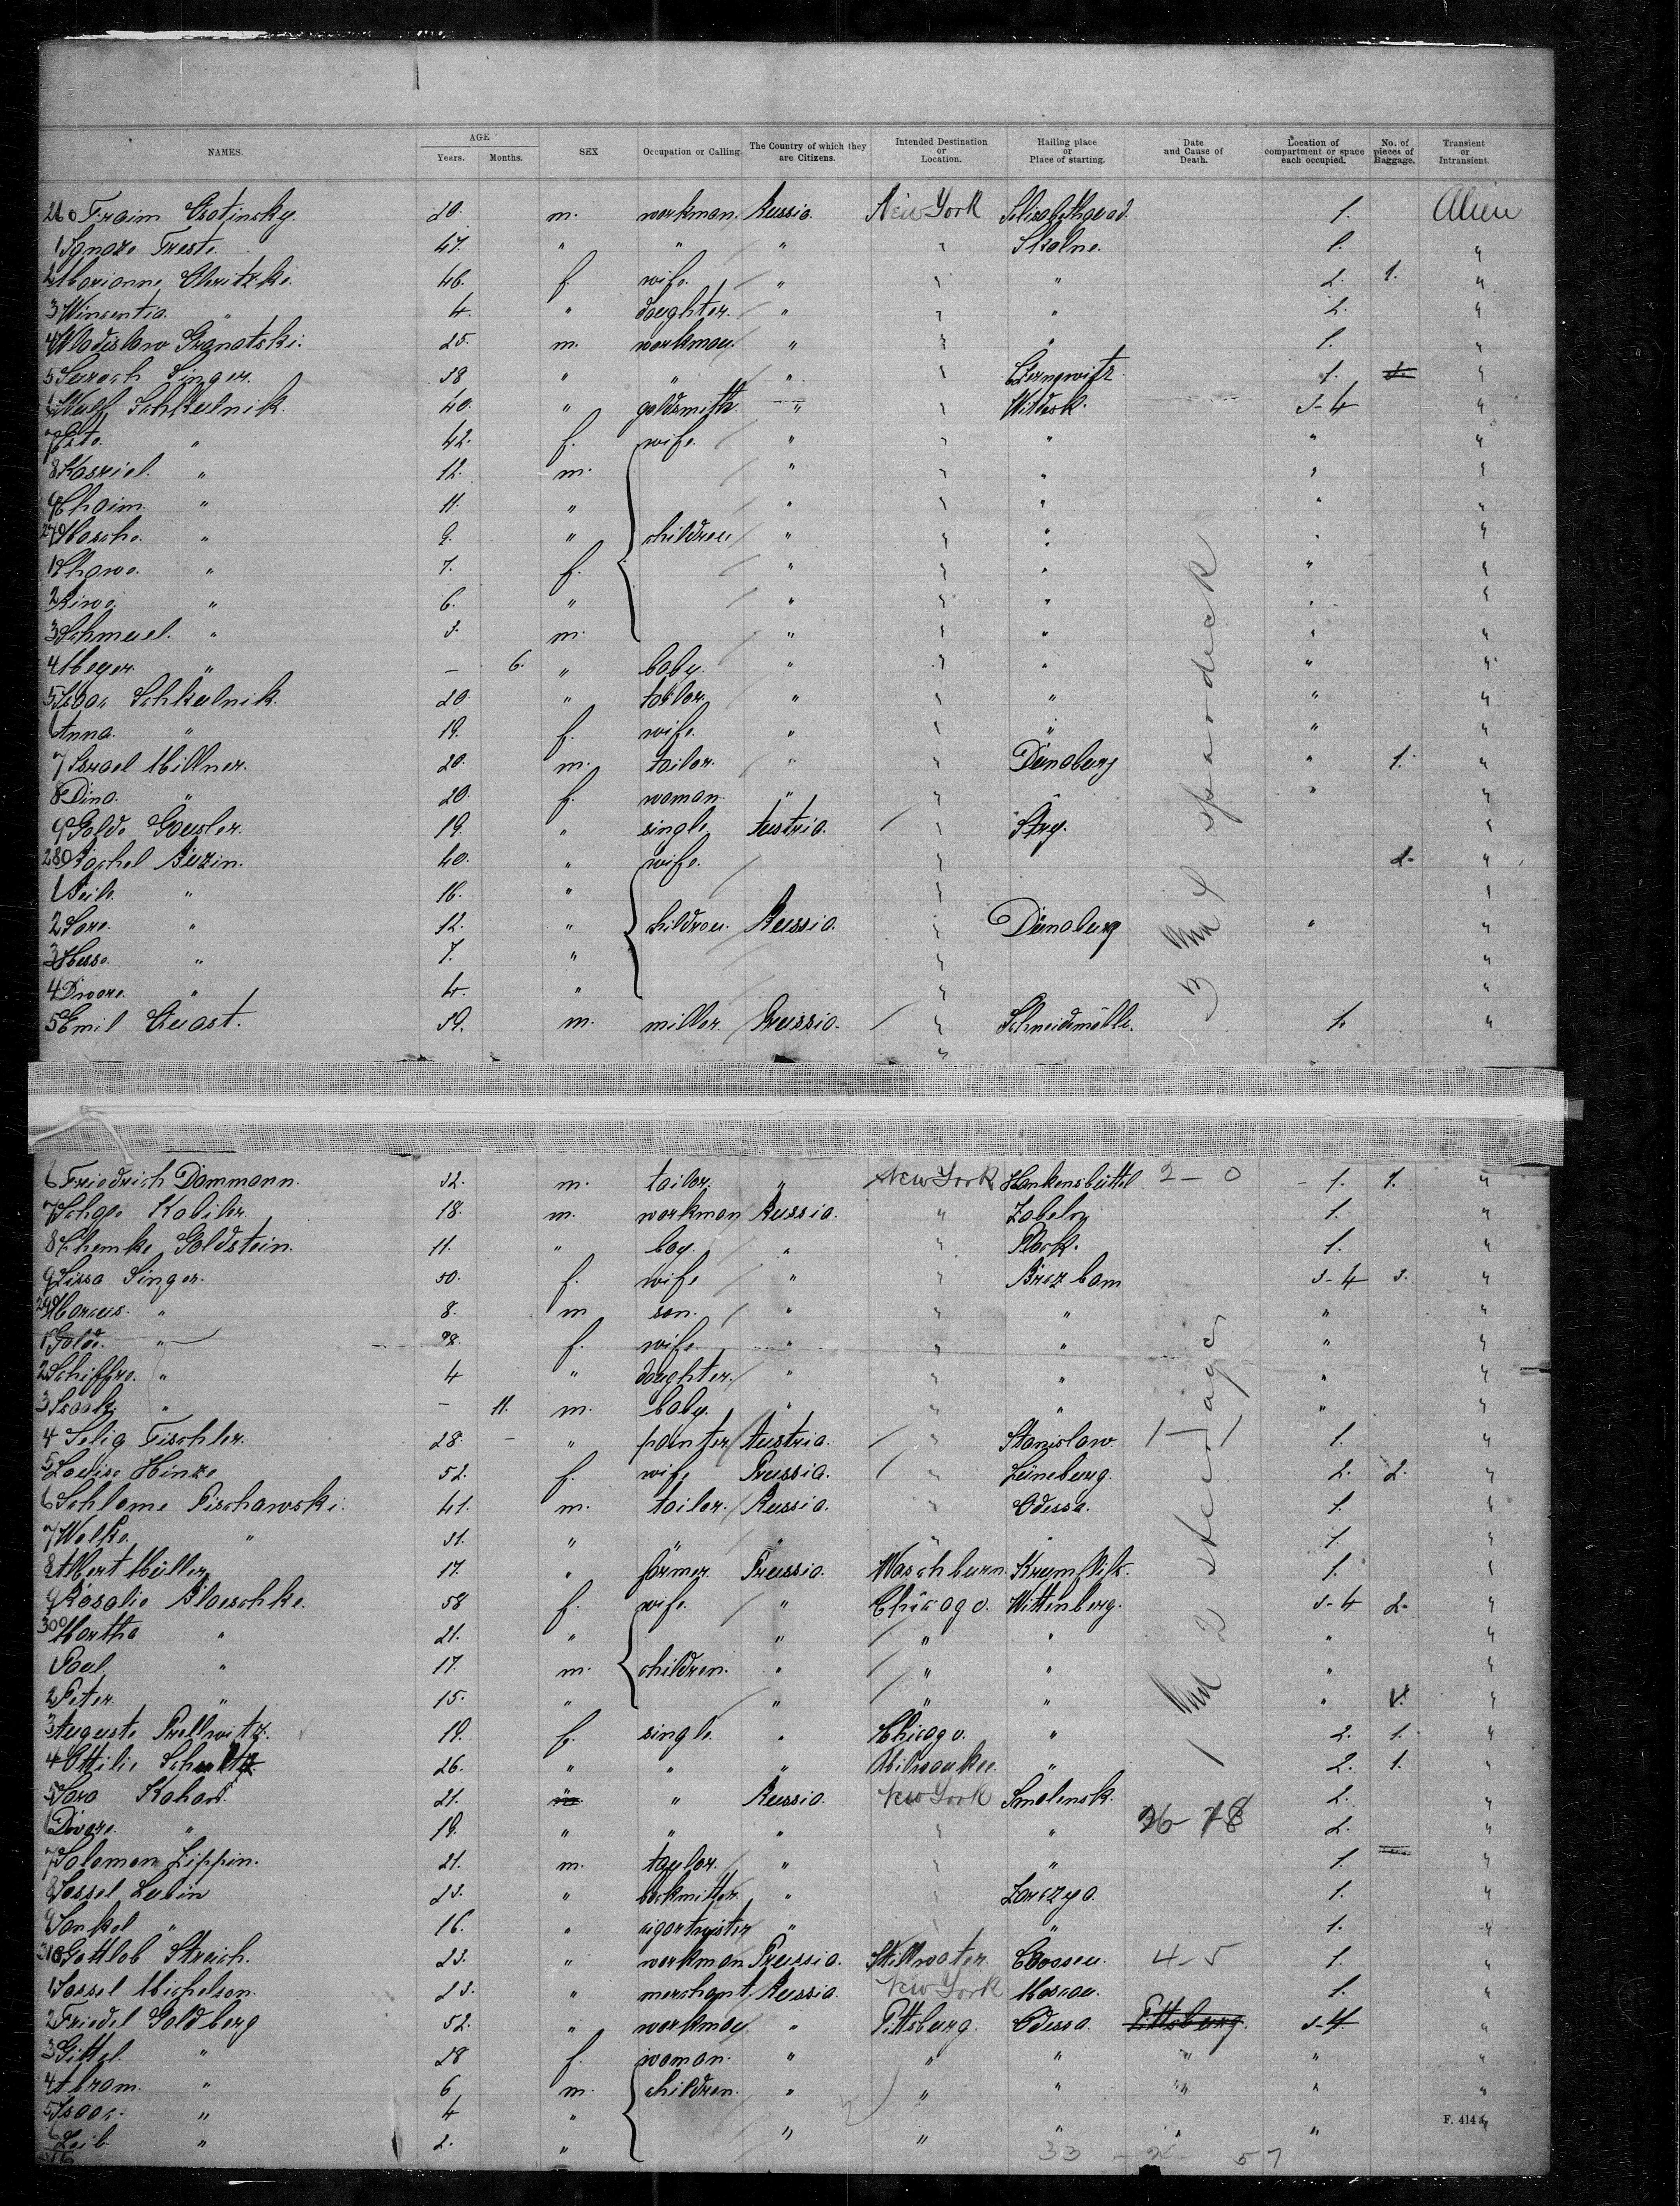 NAMES. AGE Years. Months. SEX Occupation or Calling. The Country of which they are Citizens. Intended Destination or Location. Hailing place or Place of starting. Date and Cause of Death. Location of compartment or space each occupied. No. of pieces of Baggage. Transient or Intransient.
260 Froim 20. m. workman. Russia. New York Elisabethgrad. 1. Alien
1 Ignaze Treste. 47. " " " " Skalne. 1. "
2 Marianne 46. f. wife. " " " 2. 1. "
3 Winsentia. " 4. " daughter. " " " 2. "
4 Wladislaw Granatski. 25. m. workman. " " " 1. "
5 Singer. 38 " " " " 1. "
6 Wulf Schkulnik. 40. " goldsmith. " " Witebsk. 3-4 "
7 Este. " 42. f. wife. " " " " "
8 Kasriel. " 12. m. " " " " "
9 Chaim. " 11. " " " " " "
270 Mosche. " 9. " children " " " " "
1 Chawe. " 7. f. " " " " "
2 Riwe. " 6. " " " " " "
3 Schmuel. " 3. m. " " " " "
4 Meyer. " — 6. " baby. " " " " "
5 Isaac Schkulnik. 20. " tailor. " " " " "
6 Anna. " 19. f. wife. " " " " "
7 Israel Millner. 20. m. tailor. " " Dünaburg " 1. "
8 Dina. " 20. f. woman. " " " " "
9 Golde 19. " single Austria. " Stry. "
280 Rachel Buzin. 40. " wife. " 2. "
1 " 16. " " "
2 Sore. " 12. " children. Russia. " Dünaburg " "
3 Hesse. " 7. " " "
4 Dwore. " 4. " " "
5 Emil Quast. 59. m. miller. Prussia. " Schneidmühle. 1. "
3 4 spardeck
6 Friedrich Dammann. 32. m. tailor. " New York Hankensbüttel 2 – 0 1. 1. "
7 Kobiler. 18. m. workman Russia. " 1. "
8 Chemke Goldstein. 11. " boy. " " Plock. 1. "
9 Lissa Singer. 50. f. wife " " 3-4 3. "
290 Marcus. " 8. m son. " " " " "
1 Golde. " 28. f. wife. " " " " "
2 Schiffre. " 4 " daughter. " " " " "
3 Isaak. " — 11. m. baby. " " " " "
4 Selig Fischler. 28. — " Austria. " Stanislaw. 1. "
5 Louise Hinze 52. f. wife Prussia. " Lüneburg. 2. 2. "
6 Schlome Pischawski. 41. m. tailor. Russia. " Odessa. 1. "
7 Wolke. " 31. " " " " 1. "
8 Albert Müller 17. " farmer. Prussia. Waschburn. 1. "
9 Rosalie Blaeschke. 58 f. wife. " Chicago. Wittenberg. 3-4 2. "
300 Martha " 21. " " " " " "
1 Paul. " 17. m. children. " " " " "
2 Peter. " 15. " " " " " "
3 Auguste Prellwitz. 19. f. single. " Chicago. " 2. 1. "
4 Ottilie Schultz 26. " " " Milwaukee. " 2. 1. "
5 Sara Kahan. 21. " Russia. New York Smolensk. 2. "
6 Dwore. " 19. " " " " " 2. "
7 Salomon Zippin. 21. m. taylor. " " " 1. "
8 Jossel Lubin 23. " " " 1. "
9 Jankel " 16. " " " " 1. "
310 Gottlob Streich. 23. " workman Prussia. Stillwater. 4-5 1. "
1 Jossel Michelson. 23. " merchant. Russia. New York Moscau. 1. "
2 Friedel Goldberg 52. " workman " Pittsburg. Odessa. Pittsburg. 3-4. "
3 Gittel. " 28 f. woman. " " " " " "
4 Abram. " 6 m. children. " " " " " "
5 Isaac. " 4 "
6 Leib. " 2. " " " " " "
2 steerage
F. 414
33 – 2 – 57